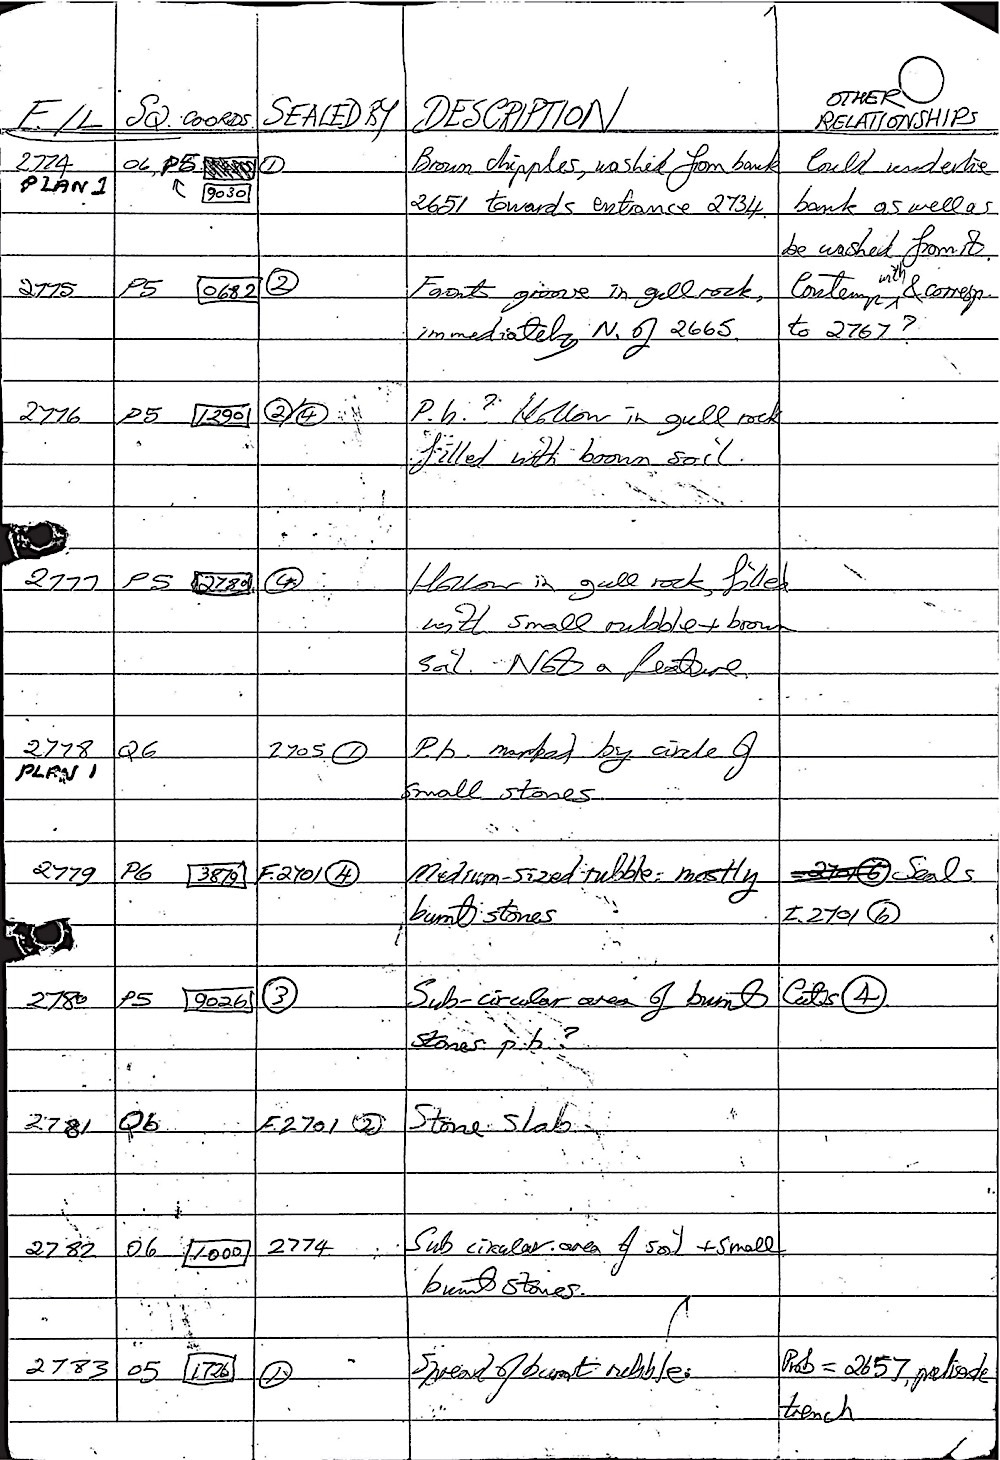 F./L SQ. COORDS SEALED BY DESCRIPTION OTHER RELATIONSHIPS
2774 O6, P5 ① Brown chipples, washed from bank Could underlie
PLAN 1 9030 2651 towards entrance 2734. bank as well as
be washed from it.
2775 P5 0682 ② Faint groove in gull rock, Contemp with & corresp.
immediately N. of 2665. to 2767?
2776 P5 1290 ②/④ P.h.? Hollow in gull rock
filled with brown soil.
2777 P5 2789 ④ Hollow in gull rock, filled
with small rubble + brown
soil. - Not a feature.
2778 Q6 2705 ① P.h. marked by circle of
PLAN 1 small stones
2779 P6 3879 F.2701 ④ Medium-sized rubble: mostly 2701 ⑥ Seals
burnt stones F.2701 ⑥
2780 P5 9026 ③ Sub-circular area of burnt Cuts ④.
stones. p.h.?
2781 Q6 F.2701 ② Stone slab.
2782 O6 1000 2774 Sub circular area of soil + small
burnt stones.
2783 O5 1726 ① Spread of burnt rubble. Prob = 2657, palisade
trench